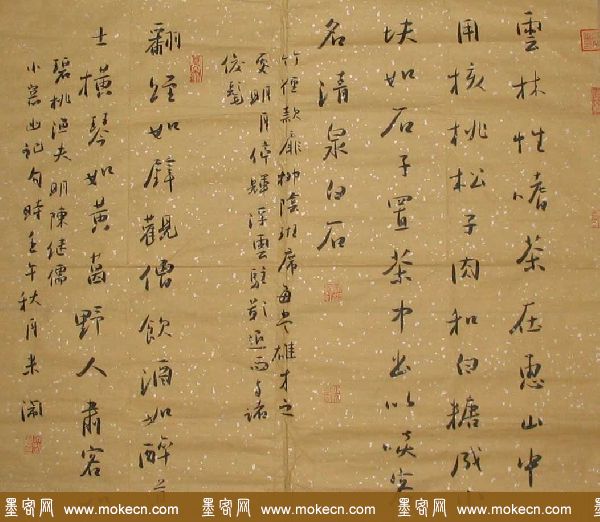 雲林性嗜茶在惠山中
用核桃松子肉和白糖成
块如石子置茶中出以啖客
名清泉白石
竹徑款扉柳陰班席每當雄才之
處明月停輝浮雲駐影退而與諸
俊髦
翻經如壁觀僧飲酒如醉道
士橫琴如黃葛野人肅客如
碧桃漁夫明陳繼儒
小窗幽記句時壬午秋月
墨客网 www.mokecn.com 墨客网 www.mokecn.com 墨客网 www.mokecn.com